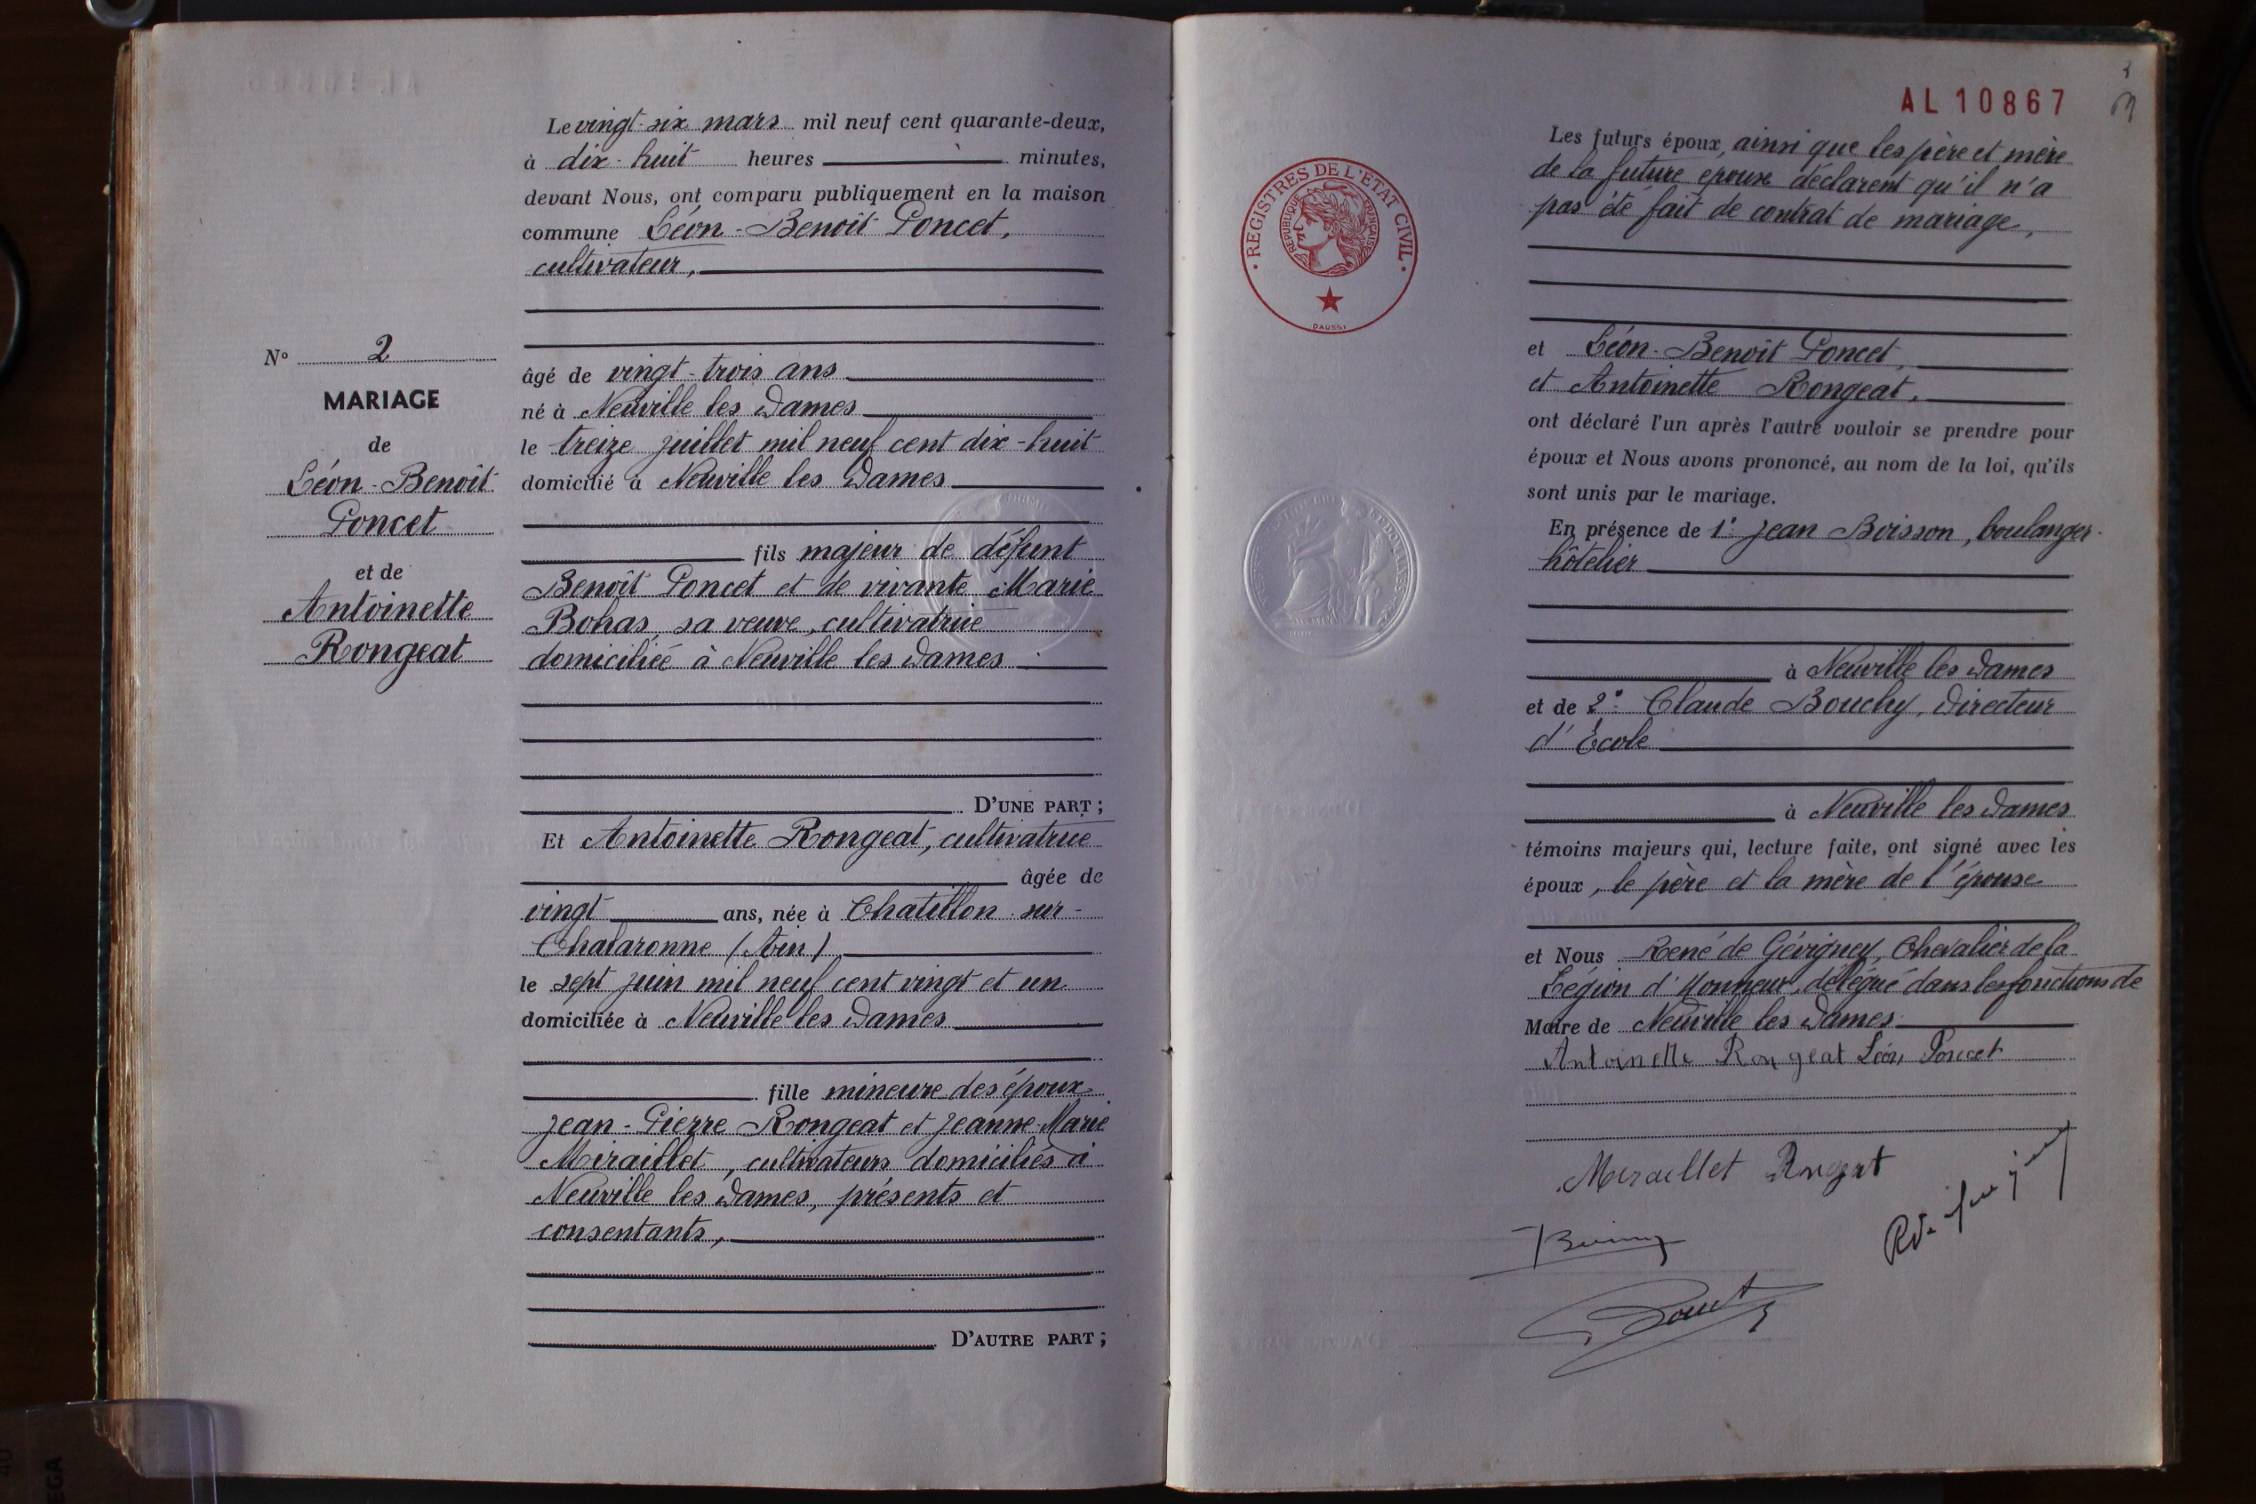 Le vingt-six mars mil neuf cent quarante-deux,
à dix-huit heures minutes,
devant Nous, ont comparu publiquement en la maison
commune Léon-Benoît Poncet,
cultivateur,
N° 2
MARIAGE
de
Léon-Benoît
Poncet
et de
Antoinette
Rongeat
âgé de vingt-trois ans
né à Neuville les Dames
le treize juillet mil neuf cent dix-huit
domicilié à Neuville les Dames
fils majeur de défunt
Benoît Poncet et de vivante Marie
Bohas, sa veuve, cultivatrice
domiciliée à Neuville les Dames
D'UNE PART ;
Et Antoinette Rongeat, cultivatrice
âgée de
vingt ans, née à Chatillon-sur-
Chalaronne (Ain)
le sept juin mil neuf cent vingt et un
domiciliée à Neuville les Dames
fille mineure des époux
Jean-Pierre Rongeat et Jeanne-Marie
Miraillet, cultivateurs domiciliés à
Neuville les Dames, présents et
consentants,
D'AUTRE PART ;
AL 10867
REGISTRES DE L'ÉTAT CIVIL
RÉPUBLIQUE FRANÇAISE
DAUSSI
Les futurs époux, ainsi que les père et mère
de la future épouse déclarent qu'il n'a
pas été fait de contrat de mariage,
et Léon-Benoît Poncet,
et Antoinette Rongeat,
ont déclaré l'un après l'autre vouloir se prendre pour
époux et Nous avons prononcé, au nom de la loi, qu'ils
sont unis par le mariage.
En présence de 1° Jean Boisson, boulanger-
hôtelier
à Neuville les Dames
et de 2° Claude Bouchy, Directeur
d'École
à Neuville les Dames
témoins majeurs qui, lecture faite, ont signé avec les
époux, le père et la mère de l'épouse
et Nous René de Gévigney, Chevalier de la
Légion d'Honneur, délégué dans les fonctions de
Maire de Neuville les Dames
Antoinette Rongeat Léon Poncet
Miraillet Rongeat